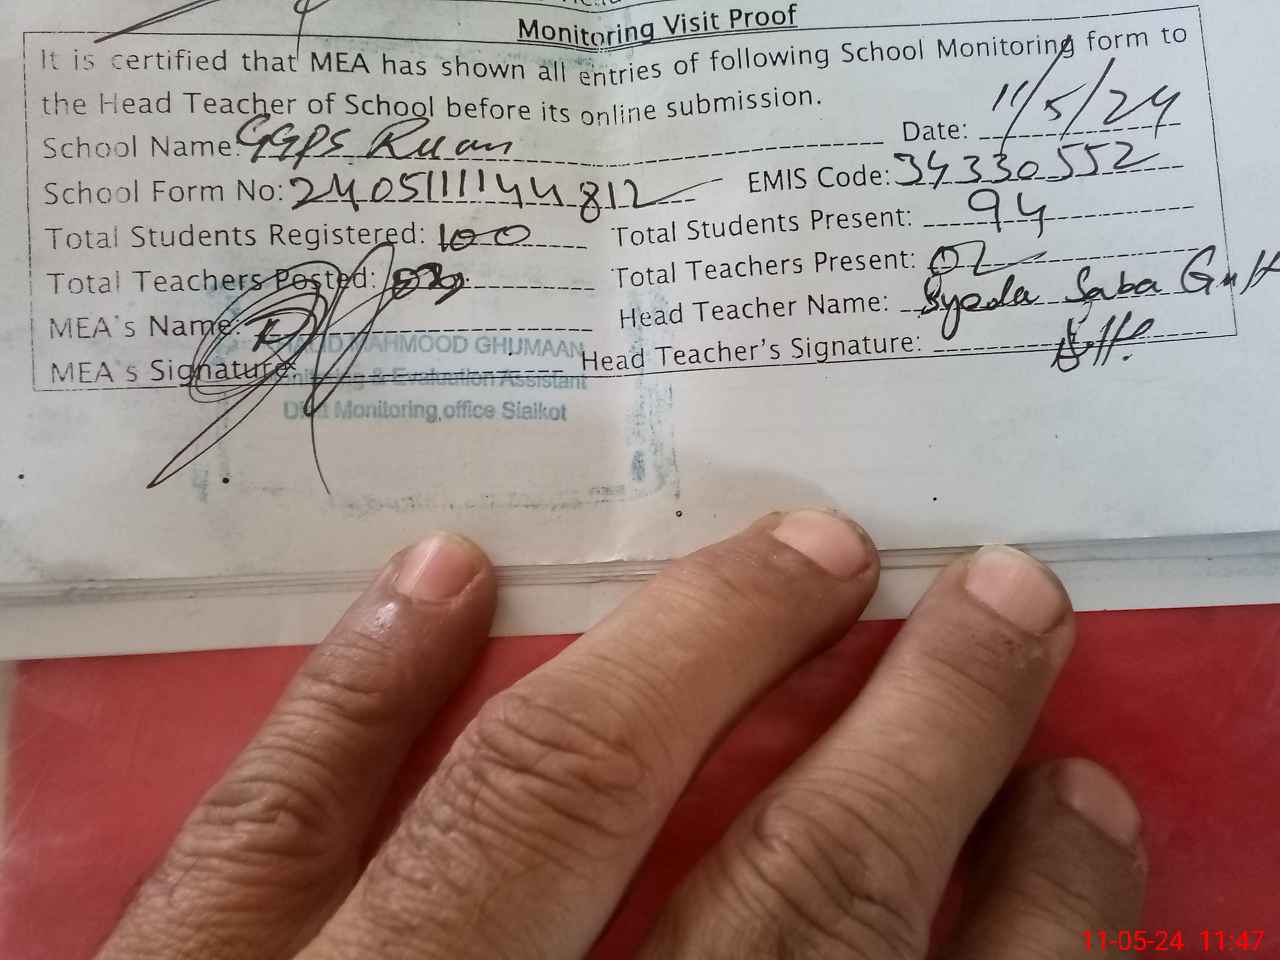 Monitoring Visit Proof
It is certified that MEA has shown all entries of following School Monitoring form to
the Head Teacher of School before its online submission.
School Name: GGPS Ruan Date: 11/5/24
School Form No: 240511144812 EMIS Code: 34330552
Total Students Registered: 100 Total Students Present: 94
Total Teachers Posted: Total Teachers Present: 02
MEA's Name: Head Teacher Name: Syeda Saba
MEA's Signature: Head Teacher's Signature:
MAHMOOD GHUMAAN
& Evaluation Assistant
Monitoring office Sialkot
11-05-24 11:47